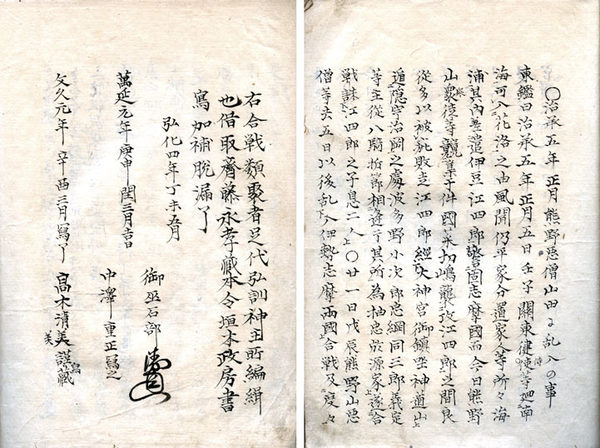 ○治承五年正月熊野悪僧山田に乱入の事
東鑑曰治承五年正月五日壬子關東健士等廻南
海可入花洛之由風聞仍平家分置家人等所々海
浦其内差遣伊豆江四郎警固志摩國而今日熊野
山衆徒等競集于件國菜切嶋襲攻江四郎之間良
從多以被疵敗走江四郎經太神宮御鎮坐神道山
遁隠宇治岡之處波多野小次郎忠綱同三郎義定
等主從八騎折節相逢于其所為抽忠於源家遂合
戦誅江四郎之子息二人○廿一日戊辰熊野山悪
僧等去五日以後乱入伊勢志摩両國合戦及度々
右合戦類聚者足代弘訓神主所編緝
也借取齋藤永孝蔵本令垣本政房書
寫加補脱漏了
弘化四年丁未五月
御巫
萬延元年庚申閏三月吉日
中澤重正寫之
文久元年辛酉三月寫了
高木清美謹蔵